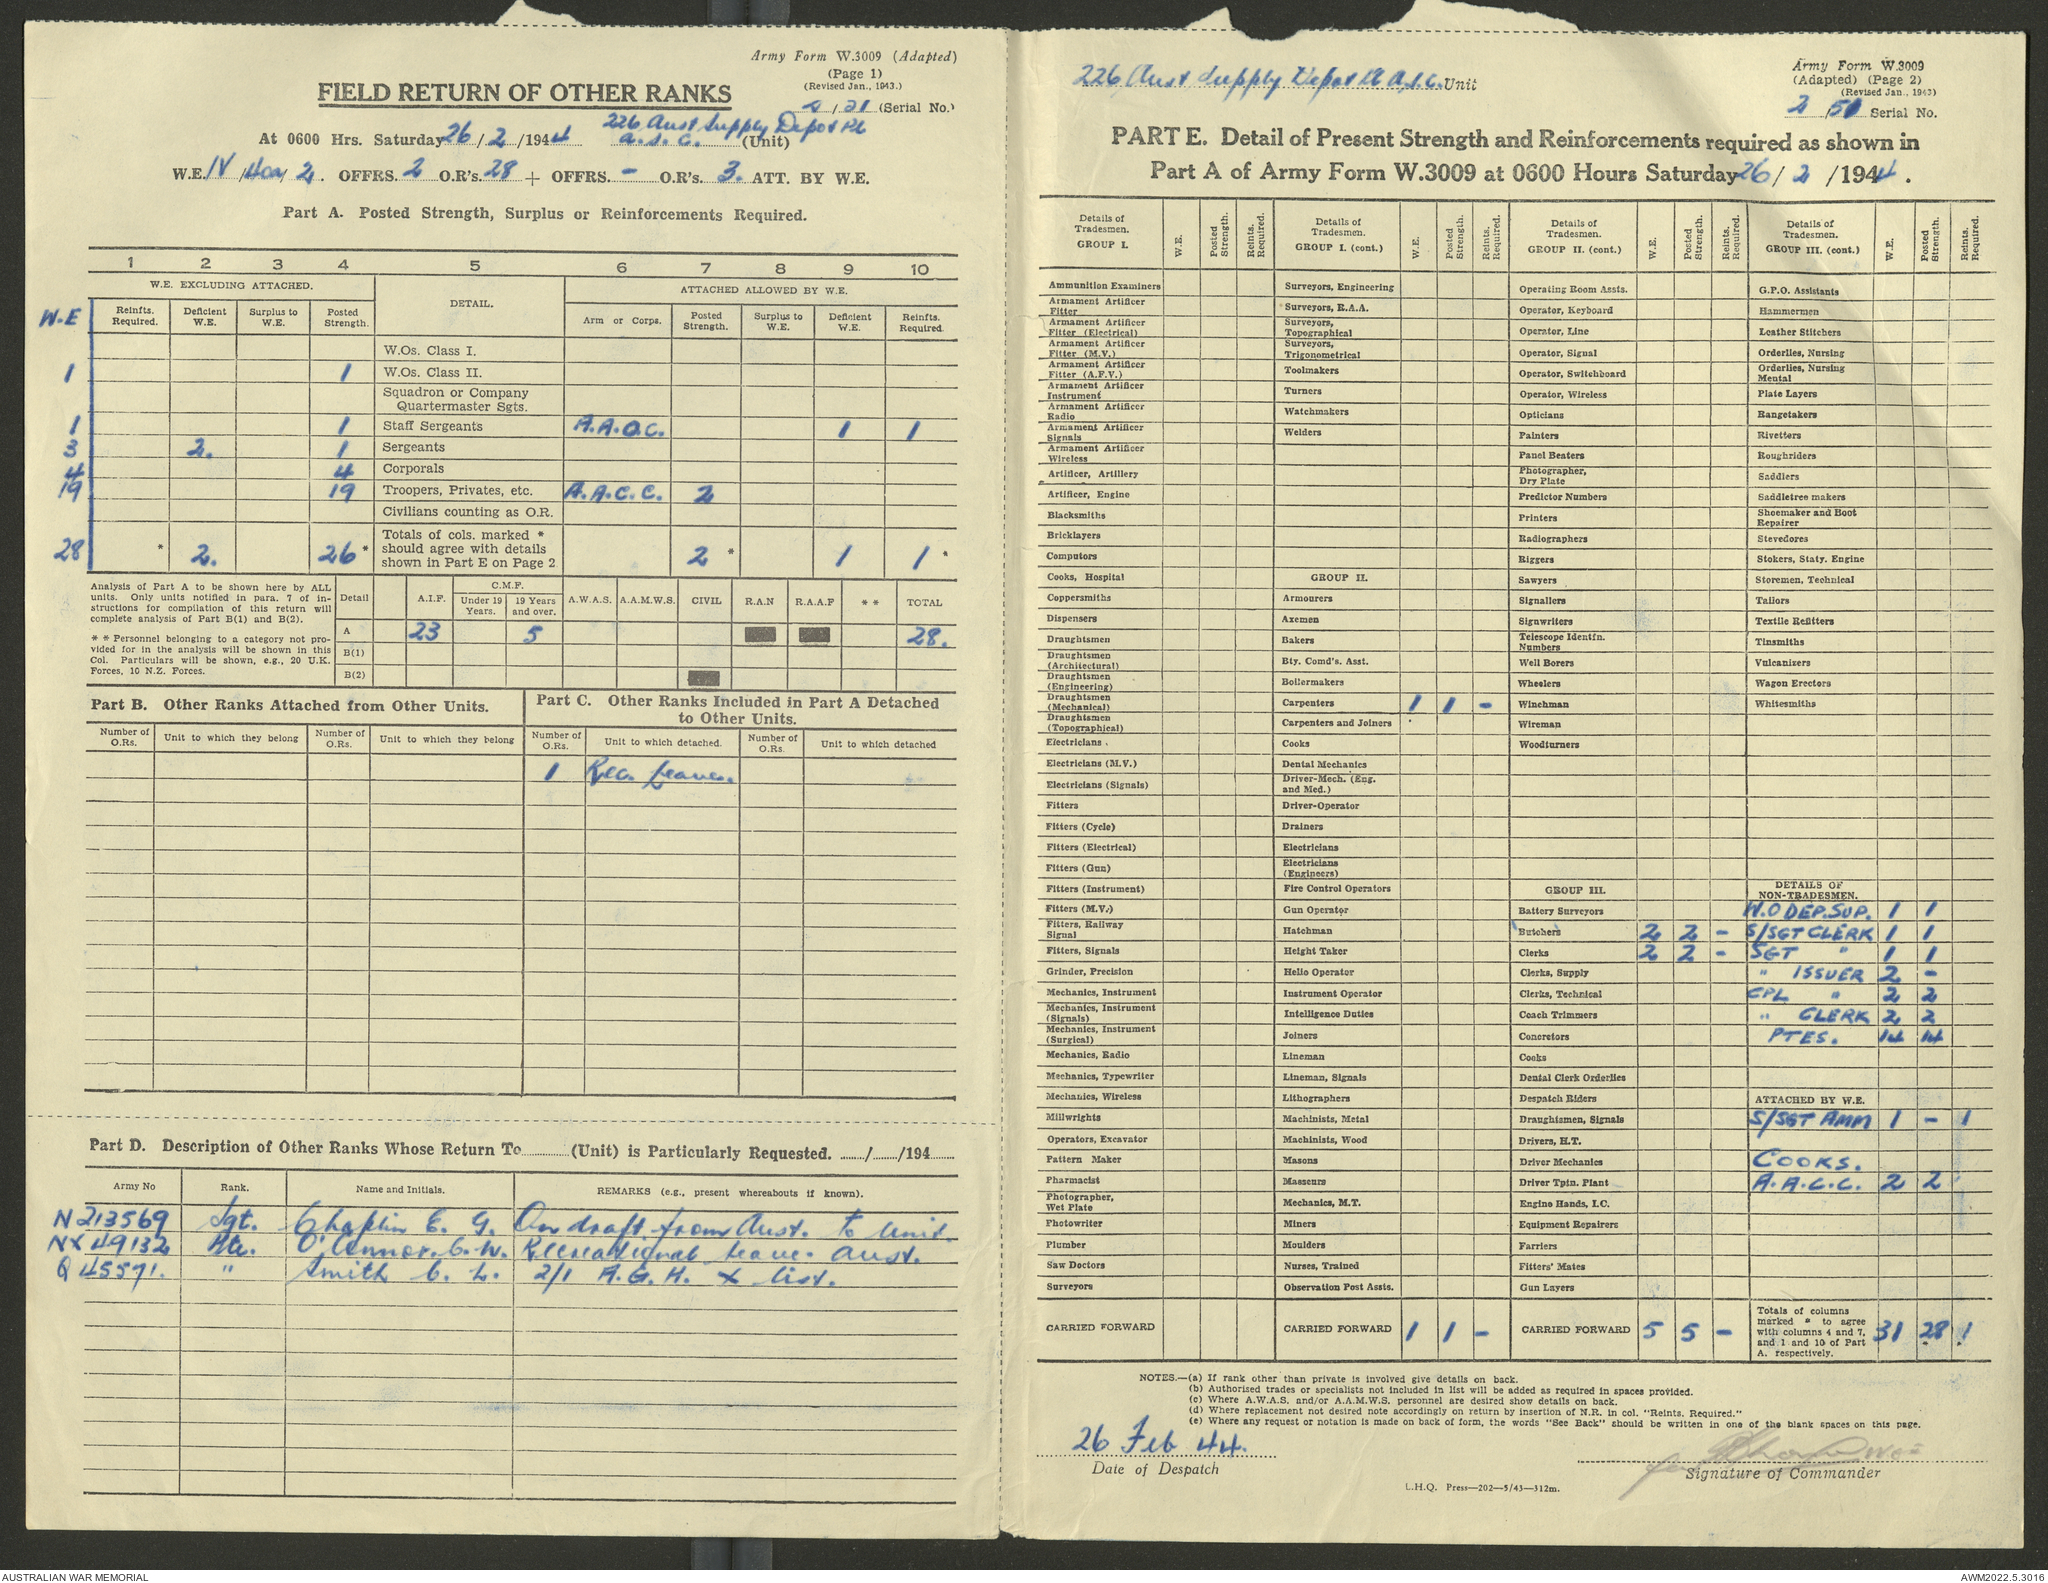 Army Form W.3009 (Adapted)
(Page 1)
(Revised Jan., 1943.)
FIELD RETURN OF OTHER RANKS
/ 21 (Serial No.)
At 0600 Hrs. Saturday 26 / 2 / 1944 226 Aust Supply Depot Pl A.S.C. (Unit)
W.E. IV / / 2. OFFRS. 2 O.R's. 28 + OFFRS. - O.R's. 3. ATT. BY W.E.
Part A. Posted Strength, Surplus or Reinforcements Required.
1 2 3 4 5 6 7 8 9 10
W.E. EXCLUDING ATTACHED. DETAIL. ATTACHED ALLOWED BY W.E.
W.E Reinfts. Required. Deficient W.E. Surplus to W.E. Posted Strength. Arm or Corps. Posted Strength. Surplus to W.E. Deficient W.E. Reinfts. Required.
W.Os. Class I.
1 1 W.Os. Class II.
Squadron or Company Quartermaster Sgts.
1 1 Staff Sergeants A.A.O.C. 1 1
3 2. 1 Sergeants
4 4 Corporals
19 19 Troopers, Privates, etc. A.A.C.C. 2
Civilians counting as O.R.
28 * 2. 26 * Totals of cols. marked * should agree with details shown in Part E on Page 2 2 * 1 1 *
Analysis of Part A to be shown here by ALL units. Only units notified in para. 7 of instructions for compilation of this return will complete analysis of Part B(1) and B(2).
* * Personnel belonging to a category not provided for in the analysis will be shown in this Col. Particulars will be shown, e.g., 20 U.K. Forces, 10 N.Z. Forces.
Detail A.I.F. C.M.F. Under 19 Years. 19 Years and over. A.W.A.S. A.A.M.W.S. CIVIL R.A.N R.A.A.F * * TOTAL
A 23 5 28.
B(1)
B(2)
Part B. Other Ranks Attached from Other Units.
Part C. Other Ranks Included in Part A Detached to Other Units.
Number of O.Rs. Unit to which they belong Number of O.Rs. Unit to which they belong Number of O.Rs. Unit to which detached. Number of O.Rs. Unit to which detached
1 Rec. Leave.
Part D. Description of Other Ranks Whose Return To (Unit) is Particularly Requested. / /194
Army No Rank. Name and Initials. REMARKS (e.g., present whereabouts if known).
N213569 Sgt. Chaplin E. G. On draft from Aust. to Unit.
NX49132 Pte. O'Connor. C.W. Recreational Leave Aust.
Q45571. " Smith C. L. 2/1 A.G.H. X list.
226 Aust Supply Depot Pl A.S.C. Unit
Army Form W.3009
(Adapted) (Page 2)
(Revised Jan., 1943)
2 / 51 Serial No.
PART E. Detail of Present Strength and Reinforcements required as shown in
Part A of Army Form W.3009 at 0600 Hours Saturday 26 / 2 / 1944.
Details of Tradesmen. GROUP I. W.E. Posted Strength. Reints. Required.
Ammunition Examiners
Armament Artificer Fitter
Armament Artificer Fitter (Electrical)
Armament Artificer Fitter (M.V.)
Armament Artificer Fitter (A.F.V.)
Armament Artificer Instrument
Armament Artificer Radio
Armament Artificer Signals
Armament Artificer Wireless
Artificer, Artillery
Artificer, Engine
Blacksmiths
Bricklayers
Computors
Cooks, Hospital
Coppersmiths
Dispensers
Draughtsmen
Draughtsmen (Architectural)
Draughtsmen (Engineering)
Draughtsmen (Mechanical)
Draughtsmen (Topographical)
Electricians
Electricians (M.V.)
Electricians (Signals)
Fitters
Fitters (Cycle)
Fitters (Electrical)
Fitters (Gun)
Fitters (Instrument)
Fitters (M.V.)
Fitters, Railway Signal
Fitters, Signals
Grinder, Precision
Mechanics, Instrument
Mechanics, Instrument (Signals)
Mechanics, Instrument (Surgical)
Mechanics, Radio
Mechanics, Typewriter
Mechanics, Wireless
Millwrights
Operators, Excavator
Pattern Maker
Pharmacist
Photographer, Wet Plate
Photowriter
Plumber
Saw Doctors
Surveyors
CARRIED FORWARD
Details of Tradesmen. GROUP I. (cont.) W.E. Posted Strength. Reints. Required.
Surveyors, Engineering
Surveyors, R.A.A.
Surveyors, Topographical
Surveyors, Trigonometrical
Toolmakers
Turners
Watchmakers
Welders
GROUP II.
Armourers
Axemen
Bakers
Bty. Comd's. Asst.
Boilermakers
Carpenters 1 1 -
Carpenters and Joiners
Cooks
Dental Mechanics
Driver-Mech. (Eng. and Med.)
Driver-Operator
Drainers
Electricians
Electricians (Engineers)
Fire Control Operators
Gun Operator
Hatchman
Height Taker
Helio Operator
Instrument Operator
Intelligence Duties
Joiners
Lineman
Lineman, Signals
Lithographers
Machinists, Metal
Machinists, Wood
Masons
Masseurs
Mechanics, M.T.
Miners
Moulders
Nurses, Trained
Observation Post Assts.
CARRIED FORWARD 1 1 -
Details of Tradesmen. GROUP II. (cont.) W.E. Posted Strength. Reints. Required.
Operating Room Assts.
Operator, Keyboard
Operator, Line
Operator, Signal
Operator, Switchboard
Operator, Wireless
Opticians
Painters
Panel Beaters
Photographer, Dry Plate
Predictor Numbers
Printers
Radiographers
Riggers
Sawyers
Signallers
Signwriters
Telescope Identfn. Numbers
Well Borers
Wheelers
Winchman
Wireman
Woodturners
GROUP III.
Battery Surveyors
Butchers 2 2 -
Clerks 2 2 -
Clerks, Supply
Clerks, Technical
Coach Trimmers
Concretors
Cooks
Dental Clerk Orderlies
Despatch Riders
Draughtsmen, Signals
Drivers, H.T.
Driver Mechanics
Driver Tptn. Plant
Engine Hands, I.C.
Equipment Repairers
Farriers
Fitters' Mates
Gun Layers
CARRIED FORWARD 5 5 -
Details of Tradesmen. GROUP III. (cont.) W.E. Posted Strength. Reints. Required.
G.P.O. Assistants
Hammermen
Leather Stitchers
Orderlies, Nursing
Orderlies, Nursing Mental
Plate Layers
Rangetakers
Rivetters
Roughriders
Saddlers
Saddletree makers
Shoemaker and Boot Repairer
Stevedores
Stokers, Staty. Engine
Storemen, Technical
Tailors
Textile Refitters
Tinsmiths
Vulcanizers
Wagon Erectors
Whitesmiths
DETAILS OF NON-TRADESMEN.
W.O DEP.SUP. 1 1
S/SGT CLERK 1 1
SGT " 1 1
" ISSUER 2 -
CPL " 2 2
" CLERK 2 2
PTES. 14 14
ATTACHED BY W.E.
S/SGT AMM 1 - 1
COOKS.
A.A.C.C. 2 2
Totals of columns marked * to agree with columns 4 and 7, and 1 and 10 of Part A. respectively. 31 28 1
NOTES.—(a) If rank other than private is involved give details on back.
(b) Authorised trades or specialists not included in list will be added as required in spaces provided.
(c) Where A.W.A.S. and/or A.A.M.W.S. personnel are desired show details on back.
(d) Where replacement not desired note accordingly on return by insertion of N.R. in col. "Reints. Required."
(e) Where any request or notation is made on back of form, the words "See Back" should be written in one of the blank spaces on this page.
26 Feb 44.
Date of Despatch
Signature of Commander
L.H.Q. Press—202—5/43—312m.
AUSTRALIAN WAR MEMORIAL
AWM2022.5.3016